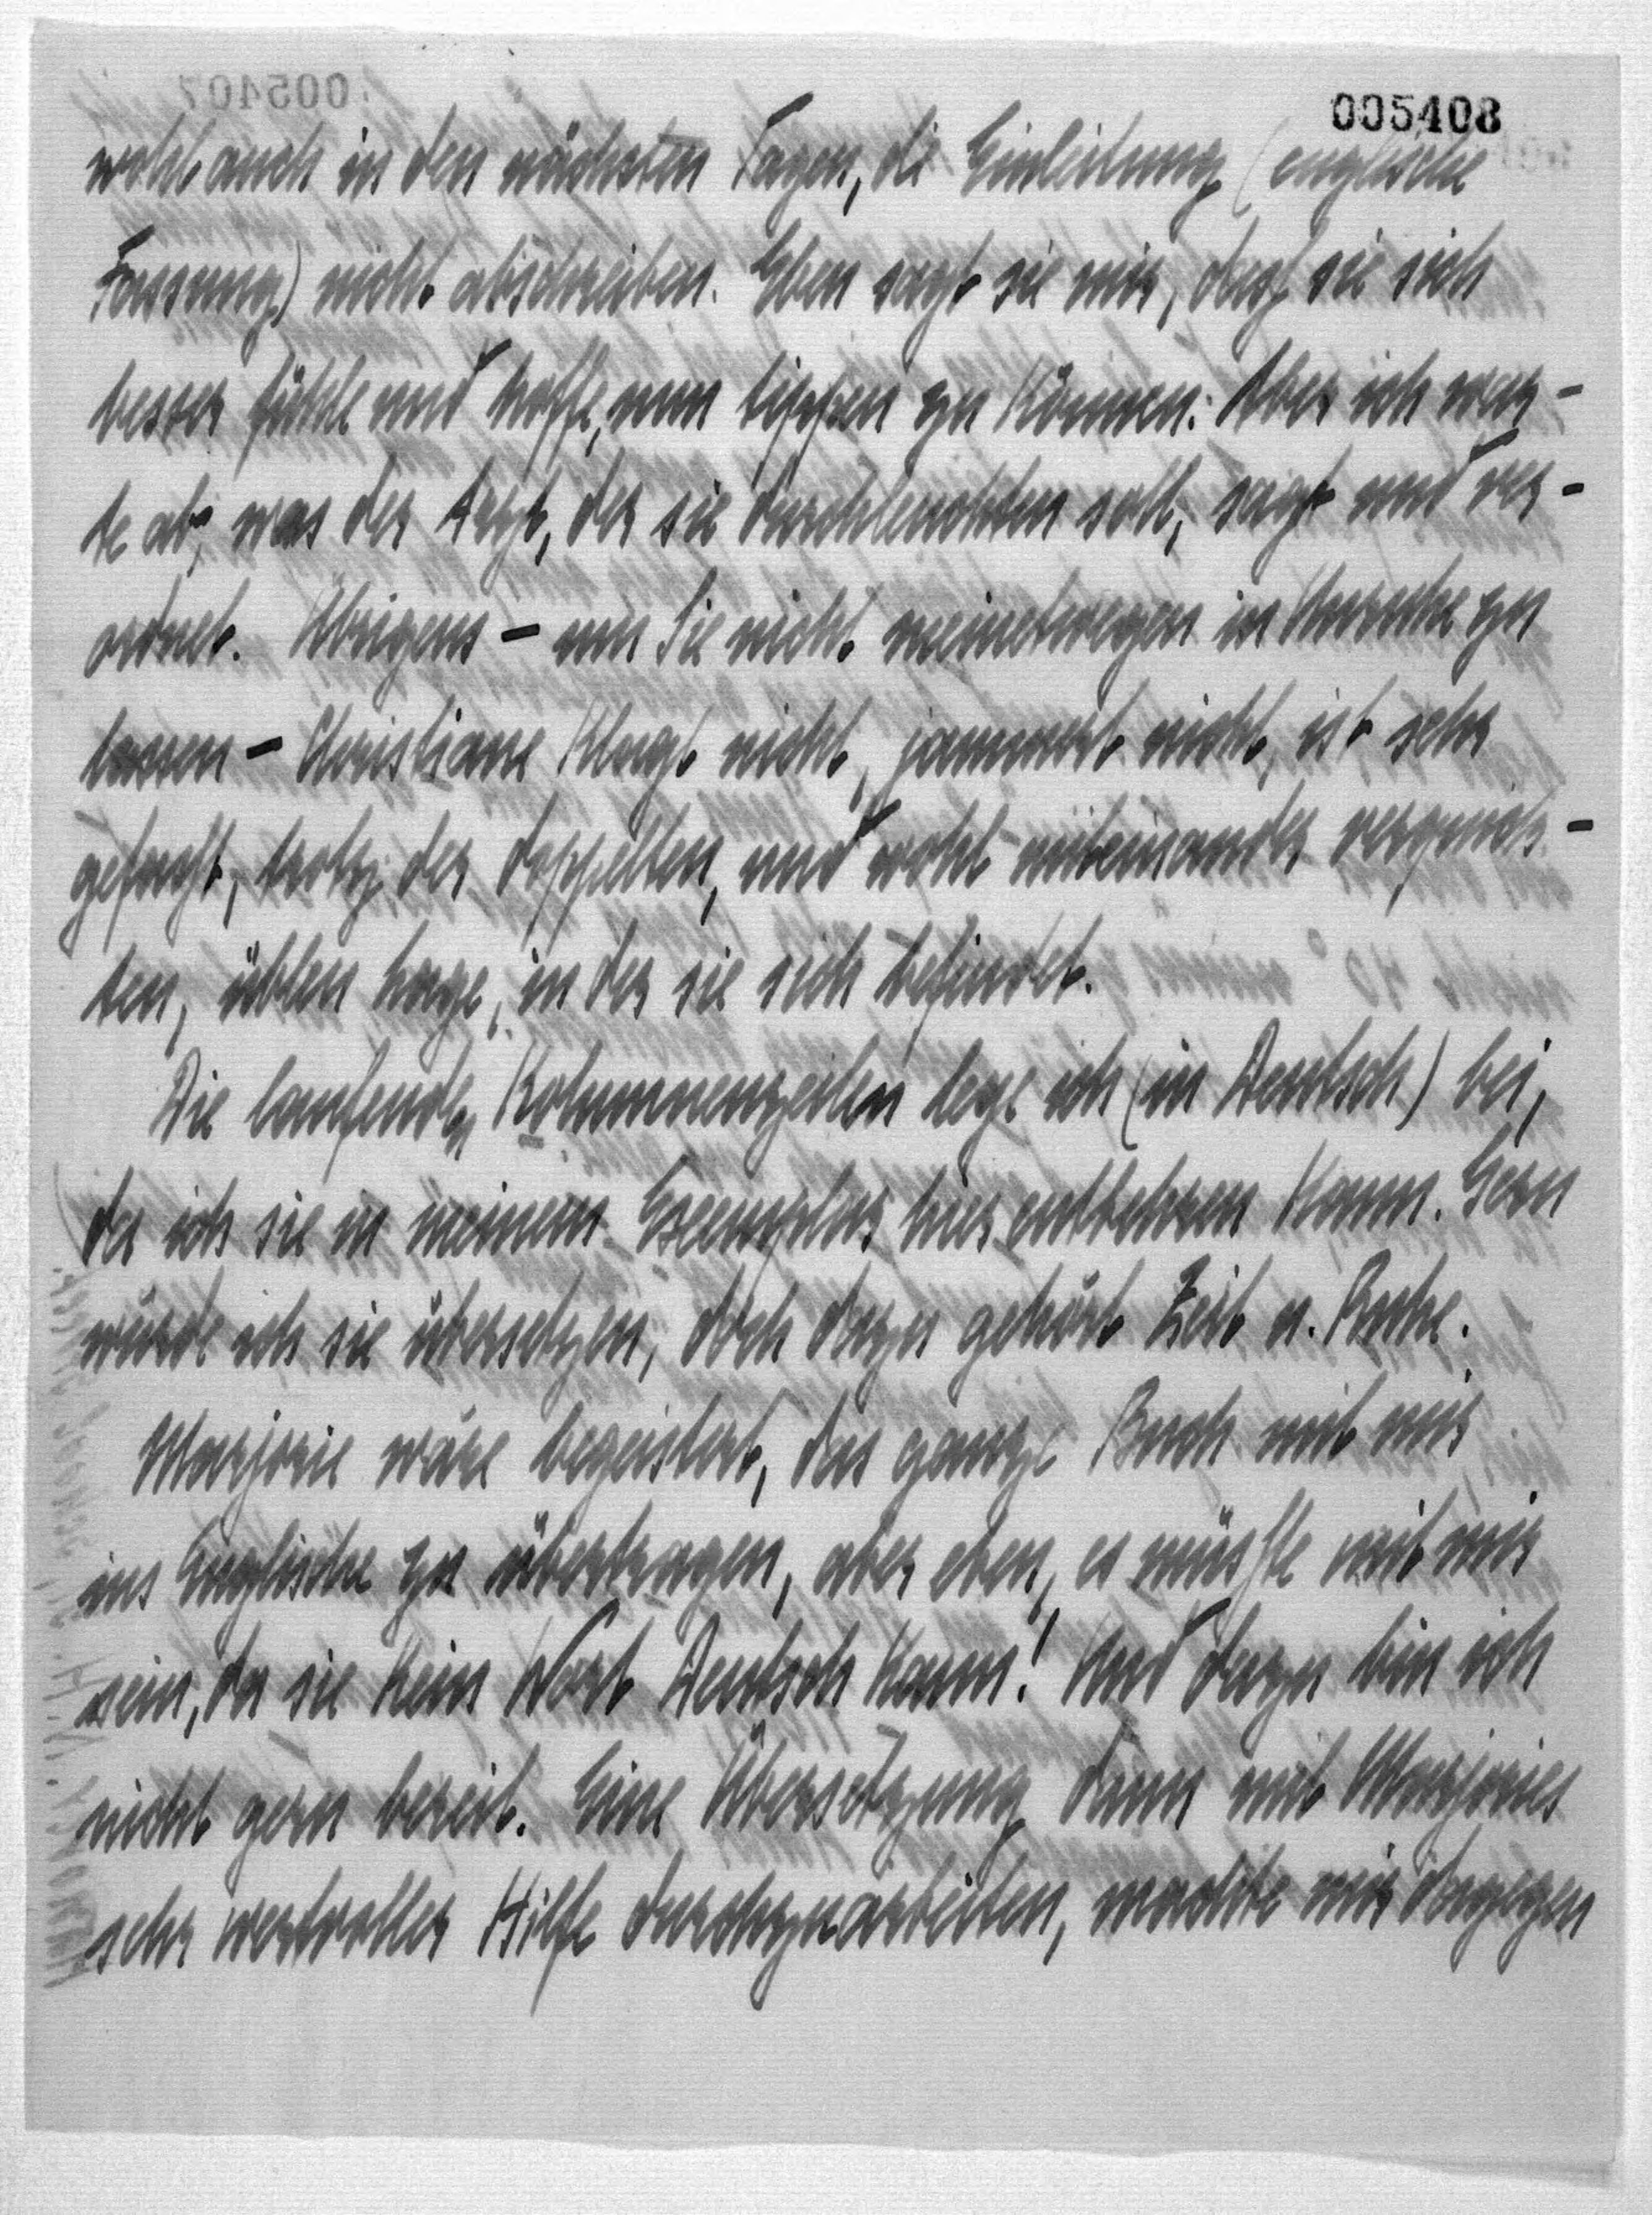 005408
wohl auch in den nächsten Tagen, die Einleitung (englische
Fassung) nicht abschreiben. Eben sagt sie mir, daß sie sich
besser fühle und hoffe, nun tippen zu können. Aber ich war-
te ab, was der Arzt, der sie durchleuchten soll, sagt und ver-
ordnet. Übrigens – um Sie nicht meinetwegen in Unruhe zu
lassen – Christiane klagt nicht, jammert nicht, ist sehr
gefaßt, trotz der doppelten, und wohl miteinander verquick-
ten, üblen Lage, in der sie sich befindet.
Die laufenden Kolumnenzeilen lege ich (in Deutsch) bei,
da ich sie in meinem Exemplar hier entbehren kann. Gern
würde ich sie übersetzen, doch dazu gehört Zeit u. Ruhe.
Marjorie wäre begeistert, das ganze Buch mit mir
ins Englische zu übertragen, aber eben, es müsste mit mir
sein, da sie kein Wort Deutsch kann! Und dazu bin ich
nicht gern bereit. Eine Übersetzung dann mit Marjories
sehr wertvoller Hilfe durchzuarbeiten, machte mir dagegen